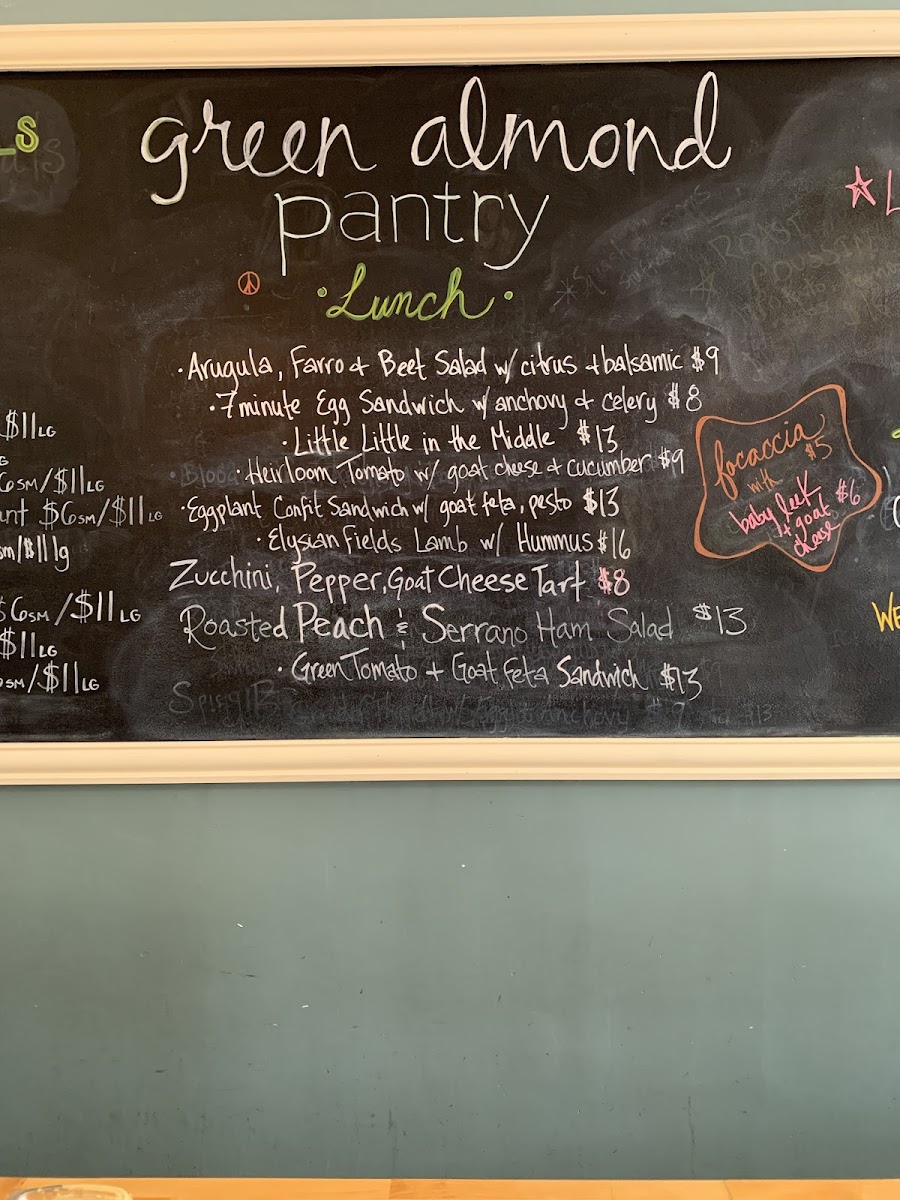 LS
green almond
pantry
·Lunch·
· Arugula, Farro + Beet Salad w/ citrus + balsamic $9
· 7 minute Egg Sandwich w/ anchovy + celery $8
· Little Little in the Middle $13
· Heirloom Tomato w/ goat cheese + cucumber $9
· Eggplant Confit Sandwich w/ goat feta, pesto $13
· Elysian Fields Lamb w/ Hummus $16
Zucchini, Pepper, Goat Cheese Tart $8
Roasted Peach & Serrano Ham Salad $13
· Green Tomato + Goat Feta Sandwich $13
focaccia $5
with
baby leek $6
+ goat
cheese
$11 LG
G
6SM/$11 LG
ant $6SM/$11 LG
sm/$11 lg
$6SM/$11 LG
$11 LG
SM/$11 LG
L
WE